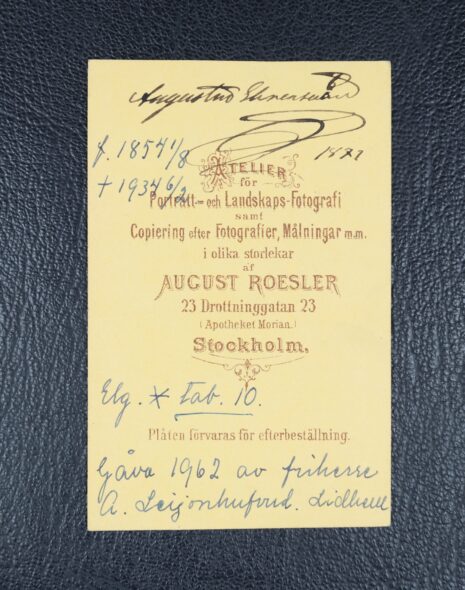 Augustus Ehrensvärd
1877
f. 1854 1/8
+ 1934 6/2
ATELIER
för
Porträtt- och Landskaps-Fotografi
samt
Copiering efter Fotografier, Målningar m.m.
i olika storlekar
af
AUGUST ROESLER
23 Drottninggatan 23
(Apotheket Morian.)
Stockholm.
Elg. * tab. 10.
Plåten förvaras för efterbeställning.
Gåva 1962 av friherre
A. Leijonhufvud. Lidhem